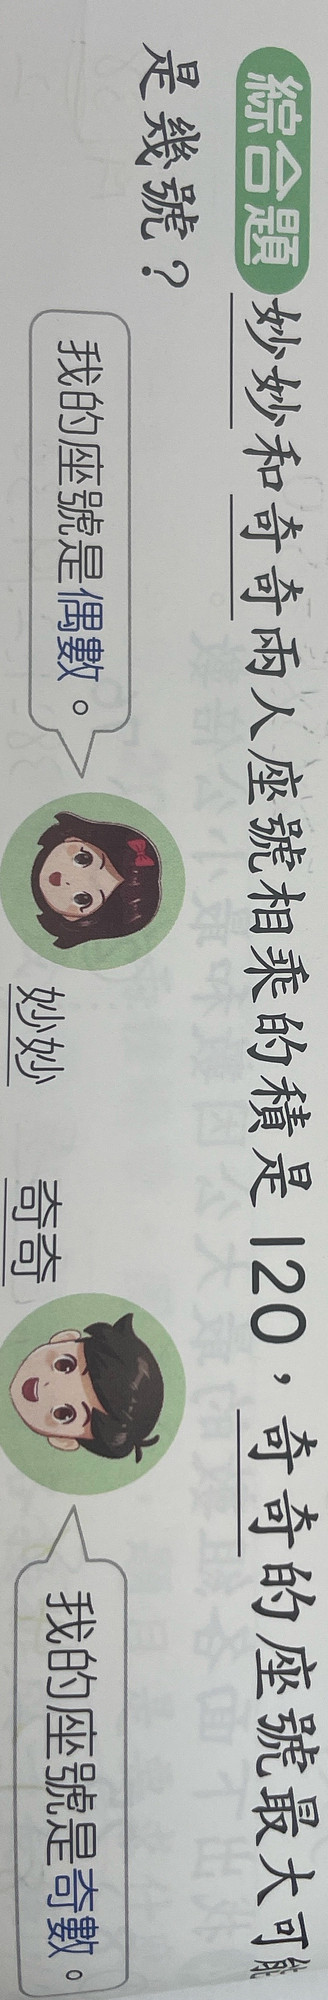 綜合題 妙妙和奇奇兩人座號相乘的積是120，奇奇的座號最大可能
是幾號？
我的座號是偶數。
妙妙
奇奇
我的座號是奇數。